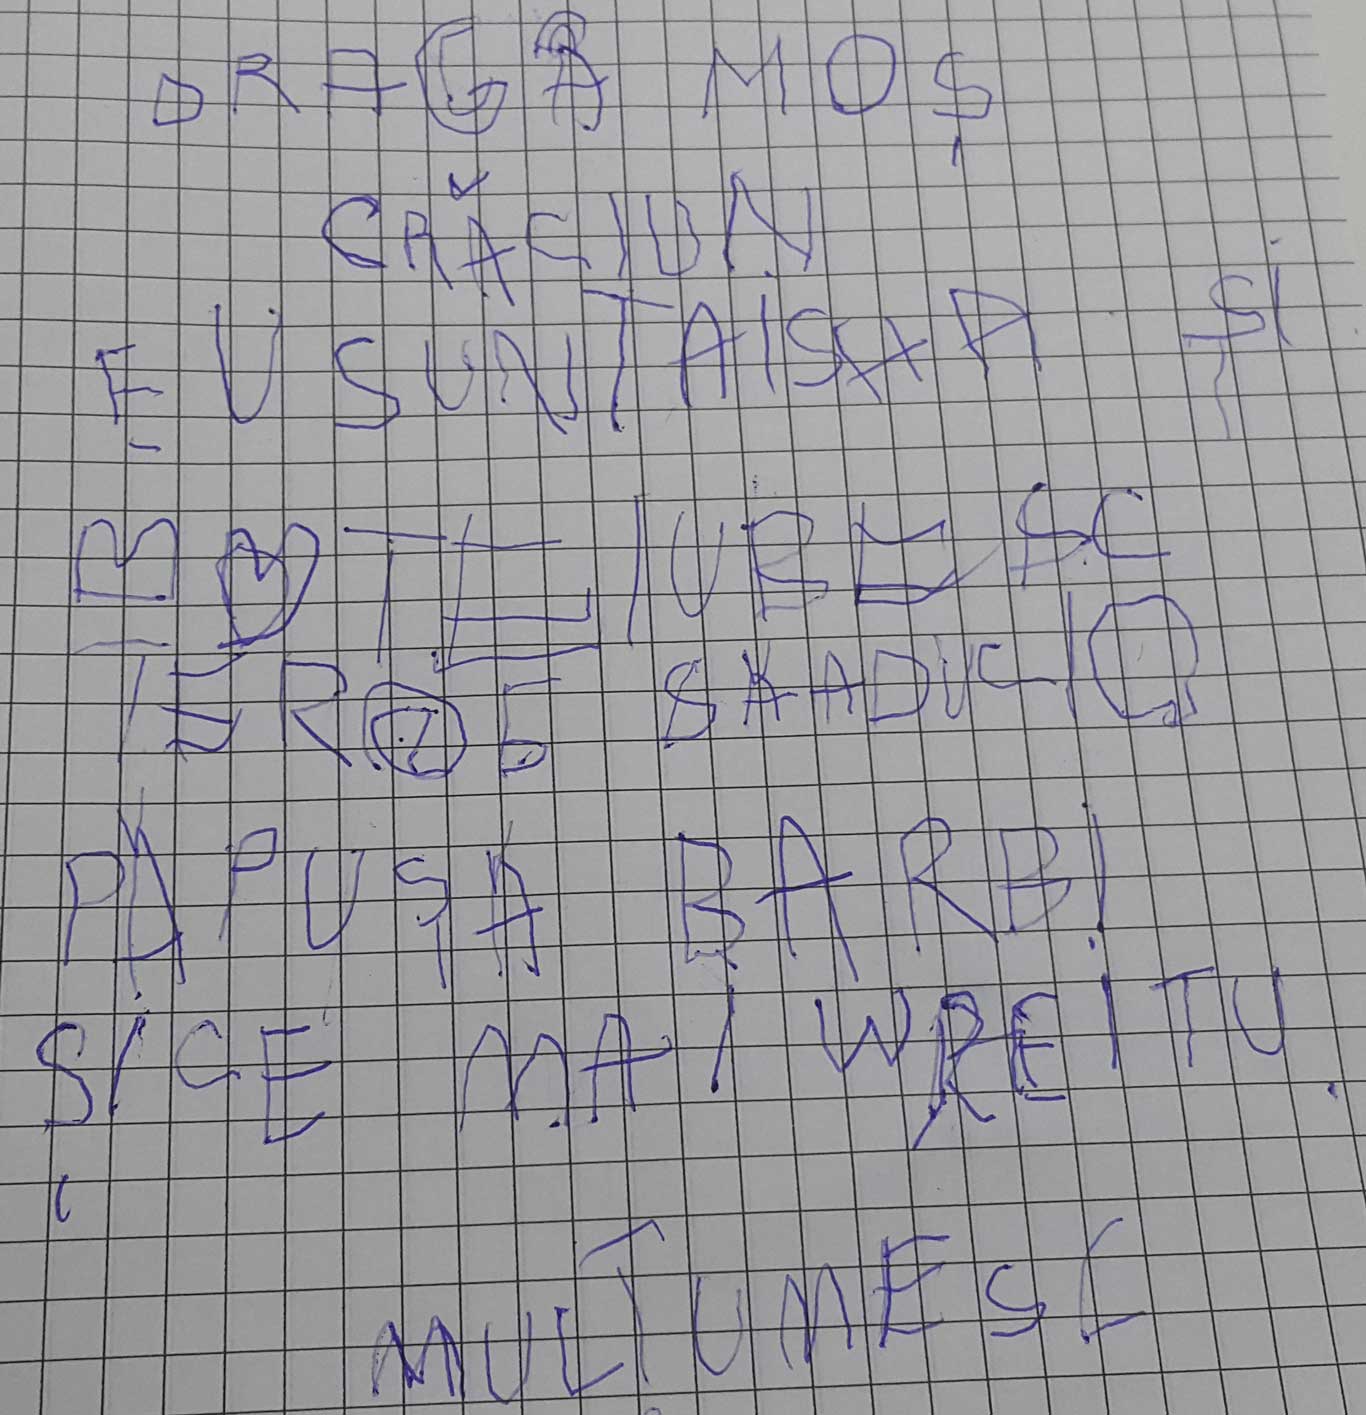 DRAGA MOȘ
CRĂCIUN
EU SUNT AISAA ȘI
TE IUBESC
TE ROG SĂ ADUCI O
PAPUȘA BARBI
ȘI CE MAI WREI TU.
MULTUMESC